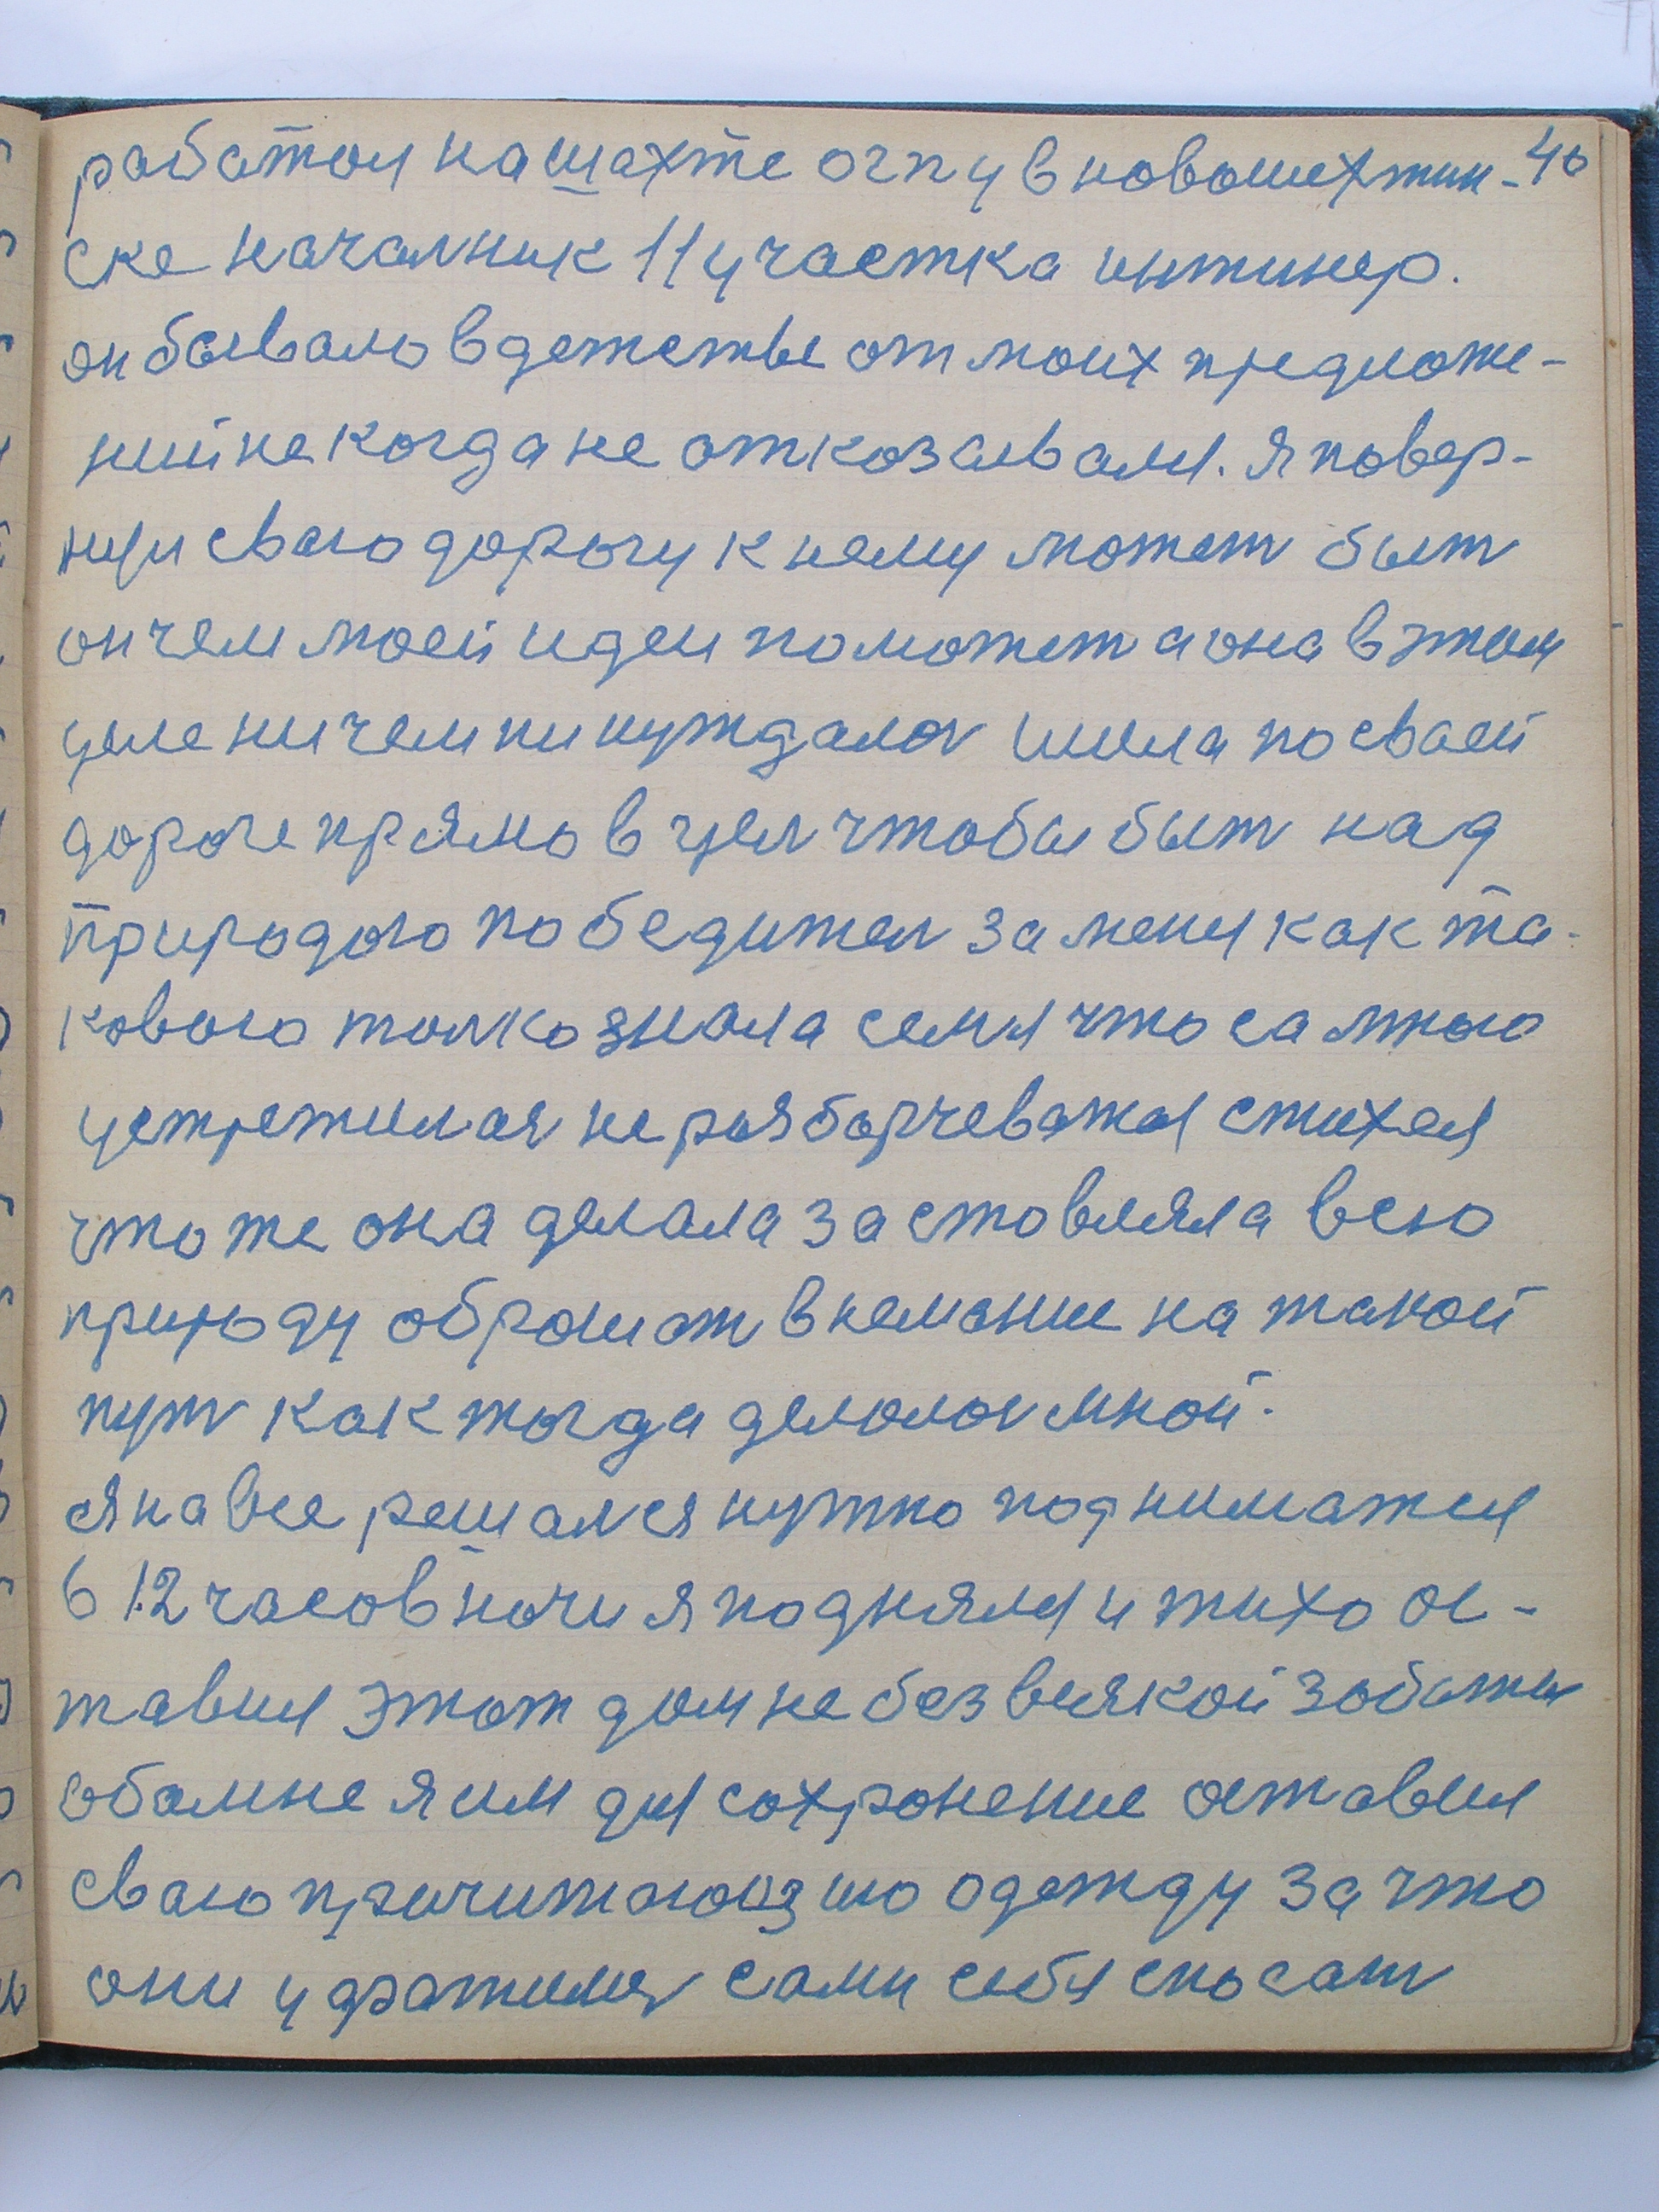 работал на шахте огпу в новошахтин- 40
ске началник 11 участка инжинер.
он бывало в детстве от моих предложе-
ний не когда не отказываля. я повер-
нул сваю дорогу к нему может быт
он чем моей идеи поможет а она в этом
деле ничем ни нуждалос шла по сваей
дороге прямо в цел чтобы быт над
природою победител за меня как та-
ковою толко знала семя что са мною
устремилас не разборчеватоя стихея
чтоже она делала заставляла всю
природу обрашат внемание на такой
пут как тогда делолос мной.
я на все решался нужно подниматся
в 12 часов ночи я поднялся и тихо ос-
тавил этот дом не без всякой заботы
обамне я им для сохронение оставил
сваю причитаюзшю одежду за что
они ухватилис сами себя спосат